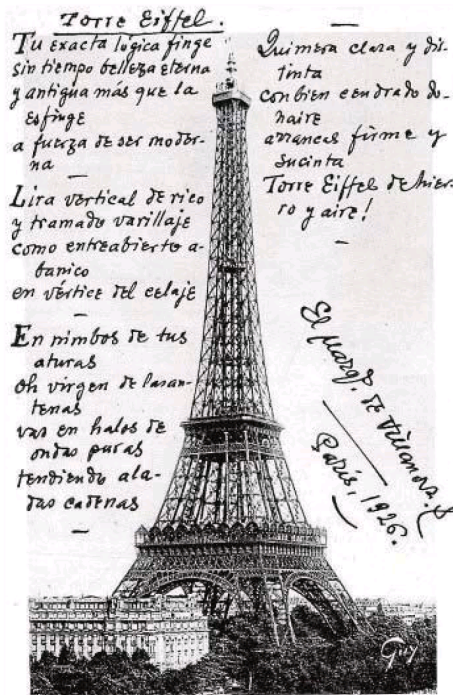 Torre Eiffel.
Tu exacta lógica finge
sin tiempo belleza eterna
y antigua más que la
esfinge
a fuerza de ser moder-
na
Lira vertical de rico
y tramado varillaje
como entreabierto a-
banico
en vértice del celaje
En nimbos de tus
aturas
oh virgen de las an-
tenas
vas en halos de
ondas puras
tendiendo ala-
das cadenas
Quimera clara y dis-
tinta
con bien cendrado do-
naire
arrancas firme y
sucinta
Torre Eiffel de hier-
ro y aire!
El Marqs. de Villanova.
París, 1926.
Guy